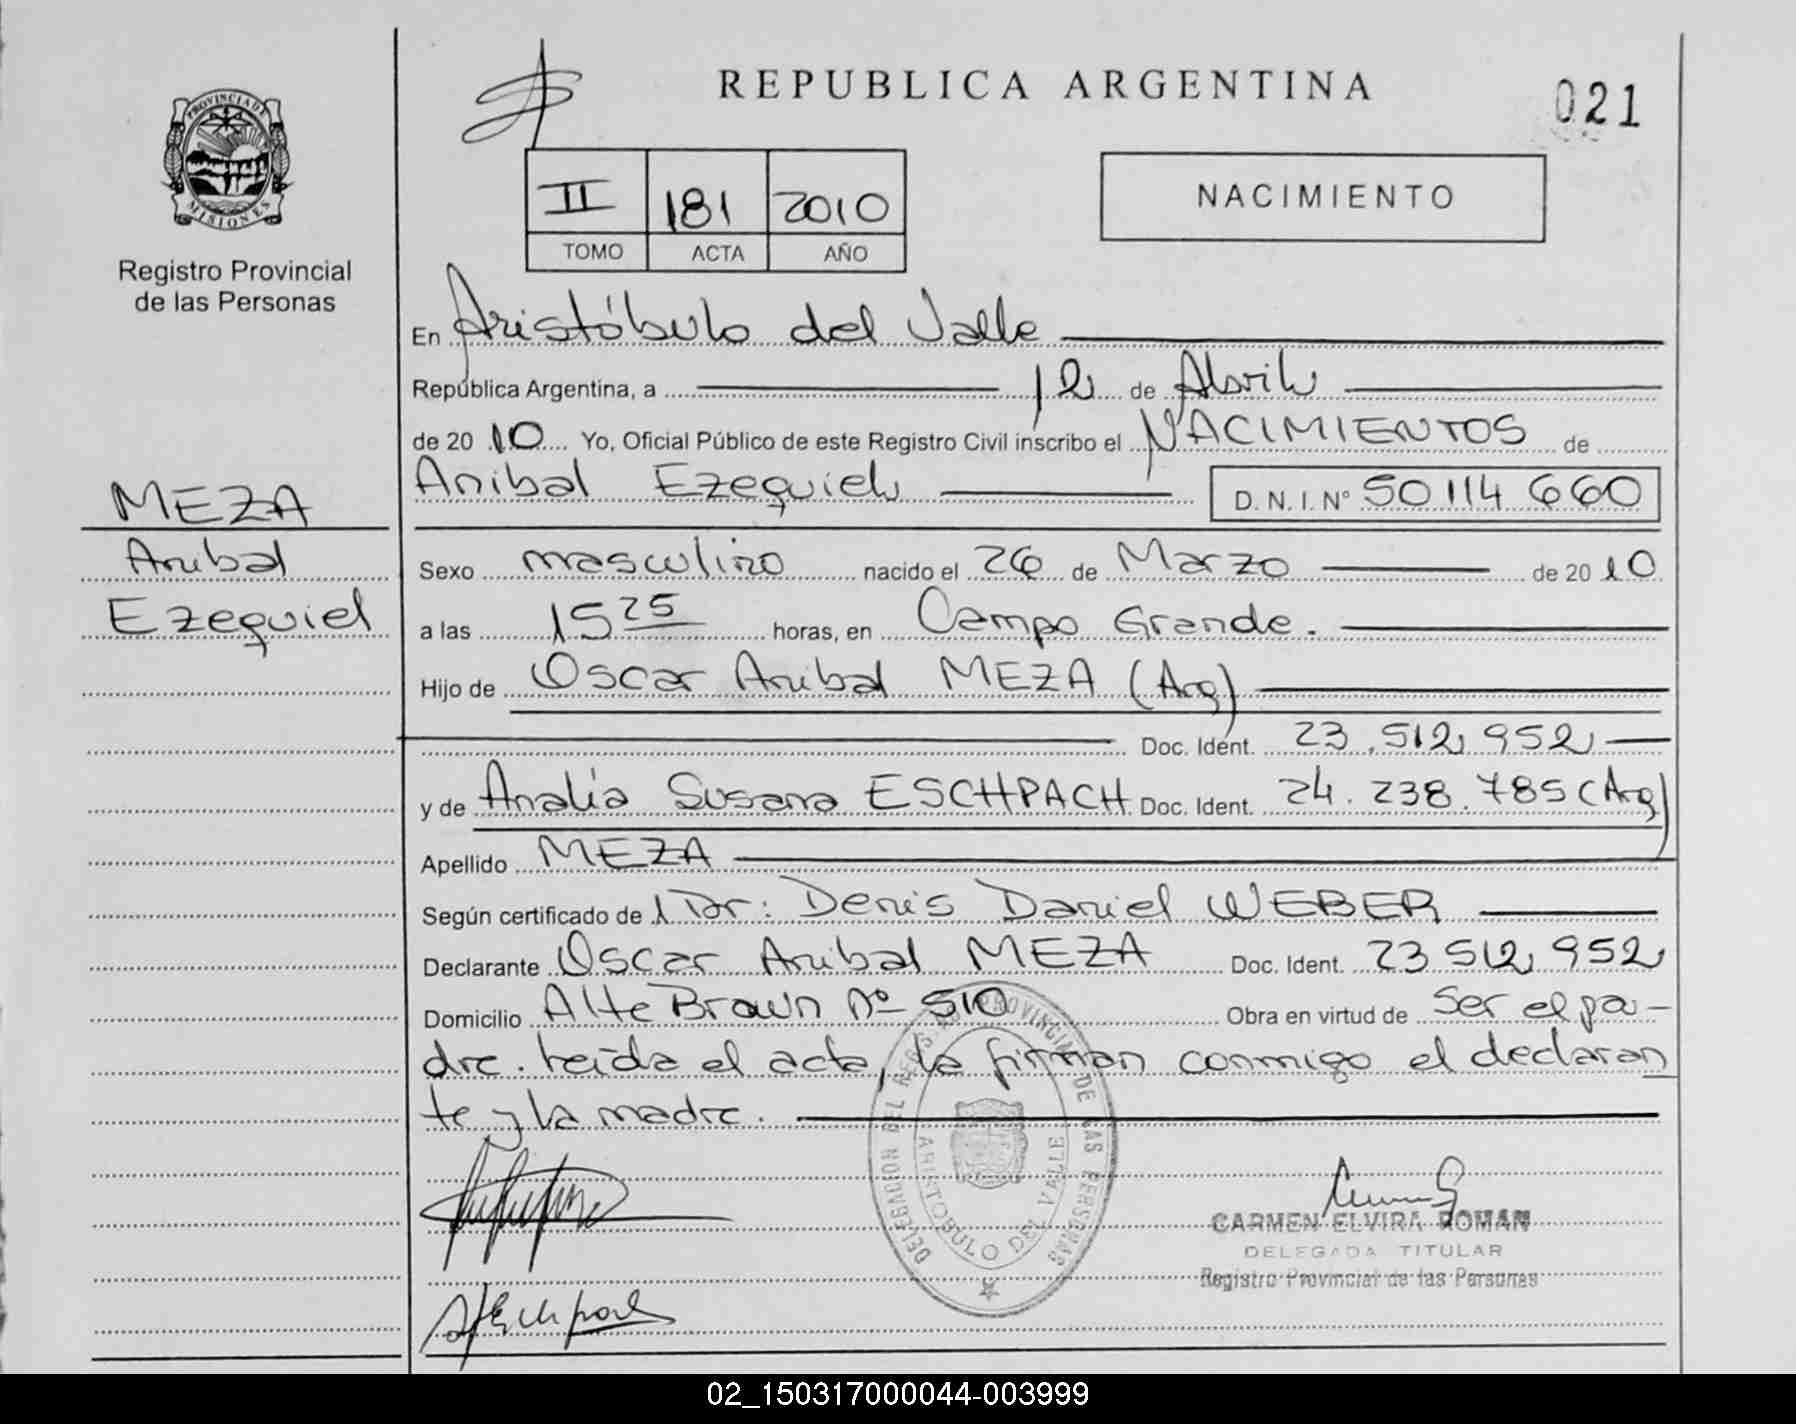 REPUBLICA ARGENTINA
021
PROVINCIA DE
MISIONES
Registro Provincial
de las Personas
II 181 2010
TOMO ACTA AÑO
NACIMIENTO
En Aristóbulo del Valle
República Argentina, a 12 de Abril
de 2010 Yo, Oficial Público de este Registro Civil inscribo el NACIMIENTOS de
Anibal Ezequiel D. N. I. N° 50114660
MEZA
Anibal
Ezequiel
Sexo masculino nacido el 26 de Marzo de 2010
a las 15 25 horas, en Campo Grande.
Hijo de Oscar Anibal MEZA (Arg)
Doc. Ident. 23.512952
y de Analía Susana ESCHPACH Doc. Ident. 24.238.785 (Arg)
Apellido MEZA
Según certificado de l Dr: Denis Daniel WEBER
Declarante Oscar Anibal MEZA Doc. Ident. 23512952
Domicilio Alte Brown Nº 510 Obra en virtud de Ser el pa-
dre. Leída el acta, la firman conmigo el declaran
te y la madre.
DELEGACION DEL REGISTRO PROVINCIAL DE LAS PERSONAS
ARISTOBULO DEL VALLE
CARMEN ELVIRA ROMAN
DELEGADA TITULAR
Registro Provincial de las Personas
02_150317000044-003999